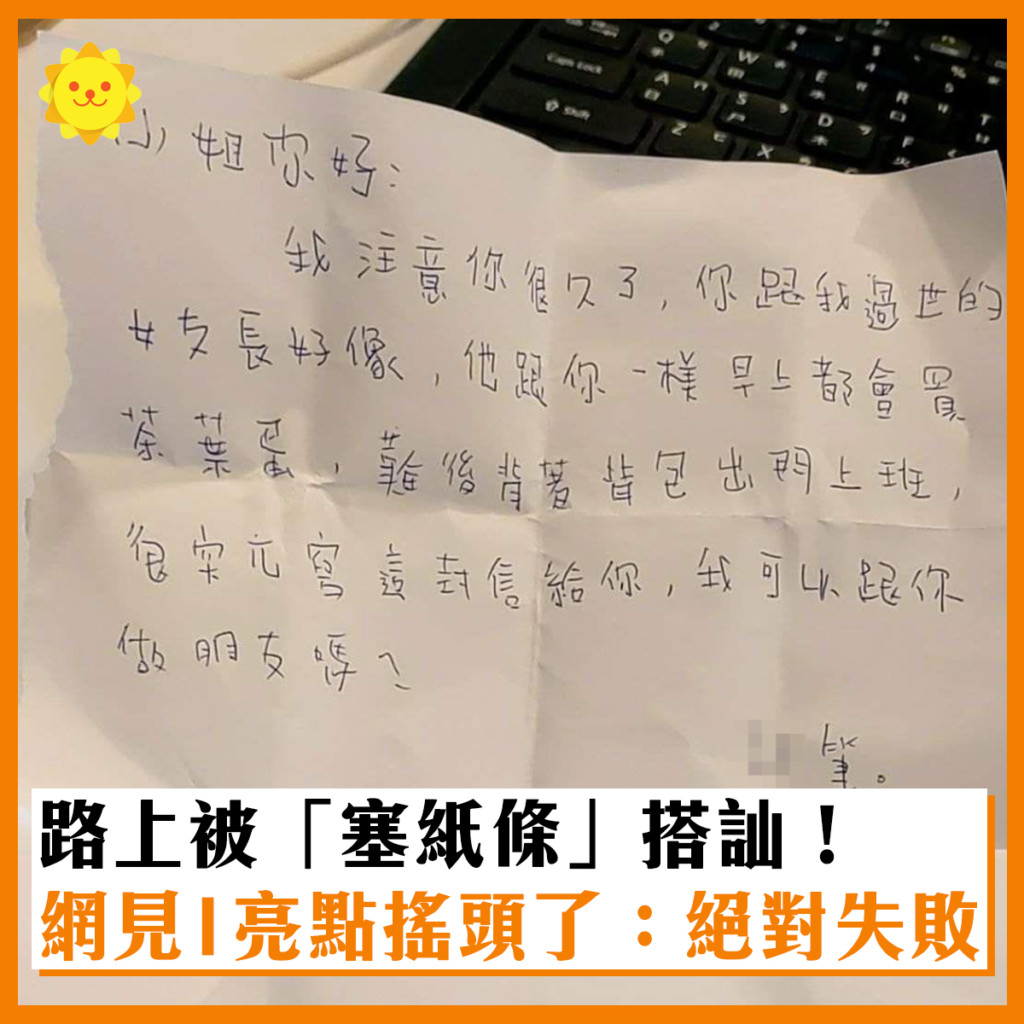 Q W E R
Caps Lock A S D F
Shift Z X
小姐你好:
我注意你很久了,你跟我過世的
女友長好像,他跟你一樣早上都會買
茶葉蛋,難後背著背包出門上班,
很突兀寫這封信給你,我可以跟你
做朋友嗎?
筆。
路上被「塞紙條」搭訕！
網見1亮點搖頭了：絕對失敗